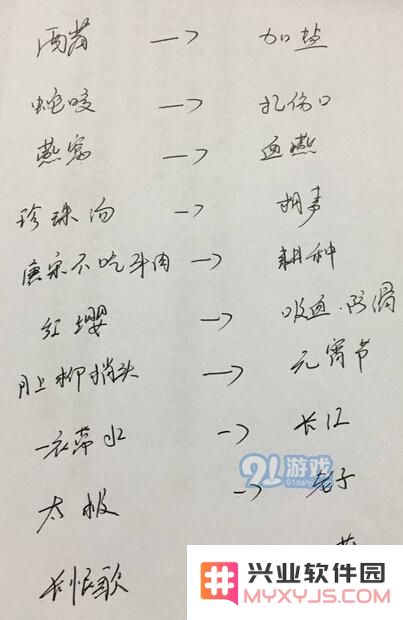 西苦 → 加盐
蛇咬 → 扎伤口
燕窝 → 血燕
珍珠汤 → 胡来
唐宋不吃牛肉 → 耕种
红缨 → 吸血.防滑
月上柳梢头 → 元宵节
一衣带水 → 长江
太极 → 老子
长恨歌
91游戏
兴业软件园
MYXYJS.COM